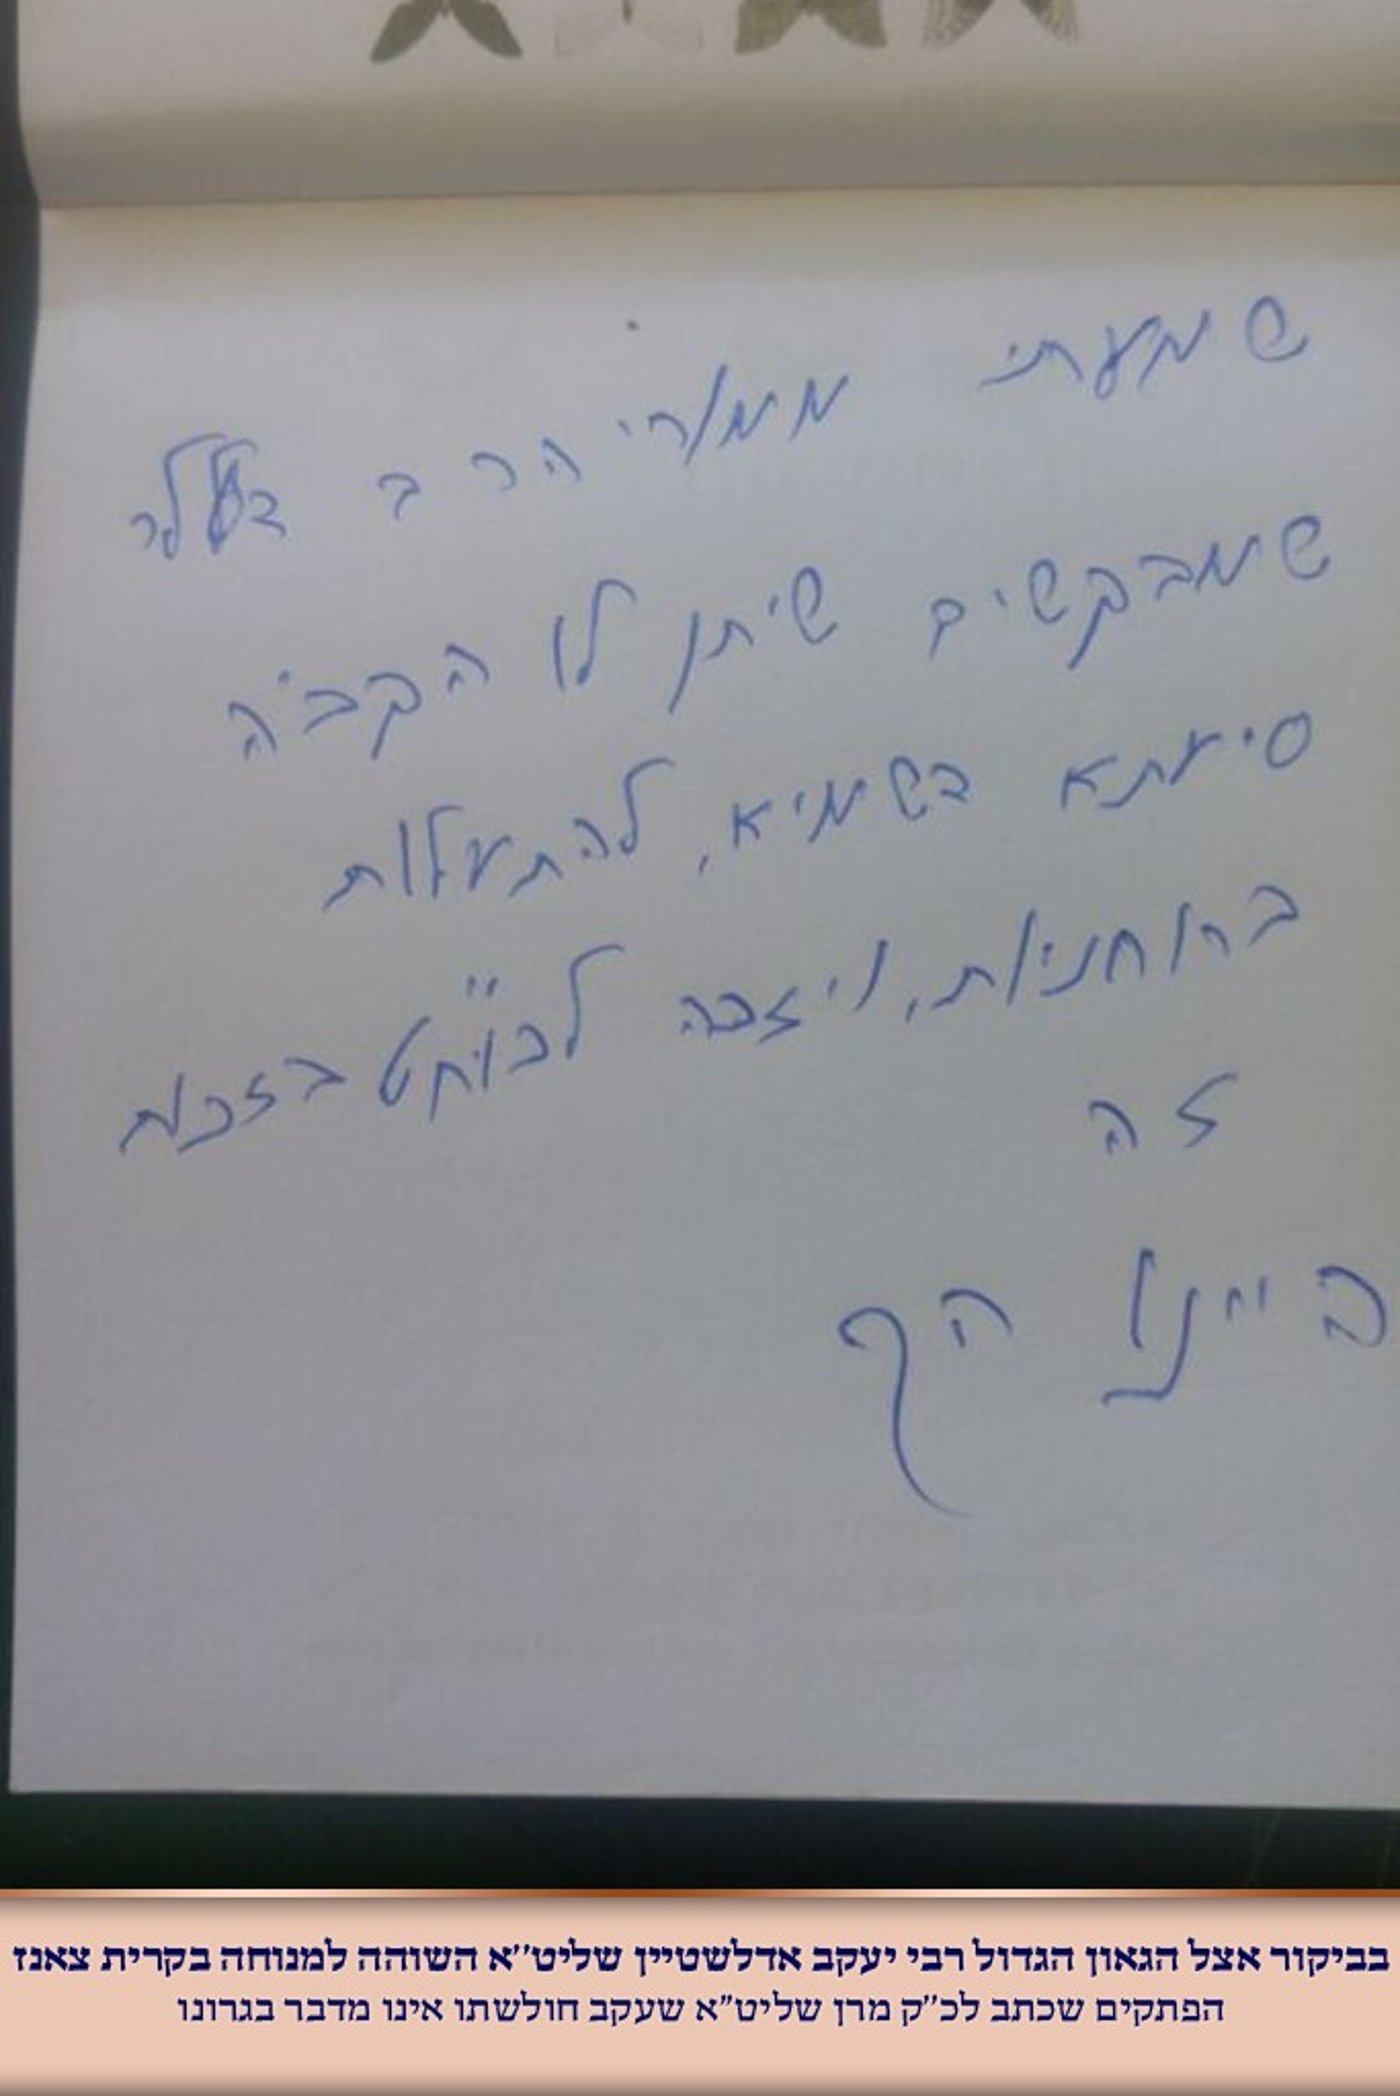 שמעתי ממורי הרב דעלר
שמבקשים שיתן לו הקב"ה
סיעתא דשמיא, להתעלות
ברוחניות, ויזכה לכוח"ט בזכות
זה
היינו הך
בביקור אצל הגאון הגדול רבי יעקב אדלשטיין שליט''א השוהה למנוחה בקרית צאנז
הפתקים שכתב לכ''ק מרן שליט"א שעקב חולשתו אינו מדבר בגרונו